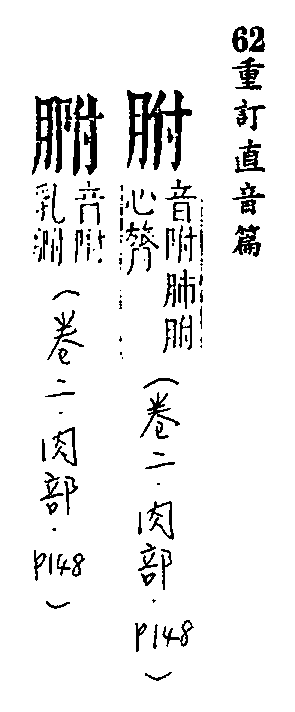 62重訂直音篇
胕
音附肺胕
心
（卷二．肉部．P148）
音附
乳
（卷二．肉部．P148）